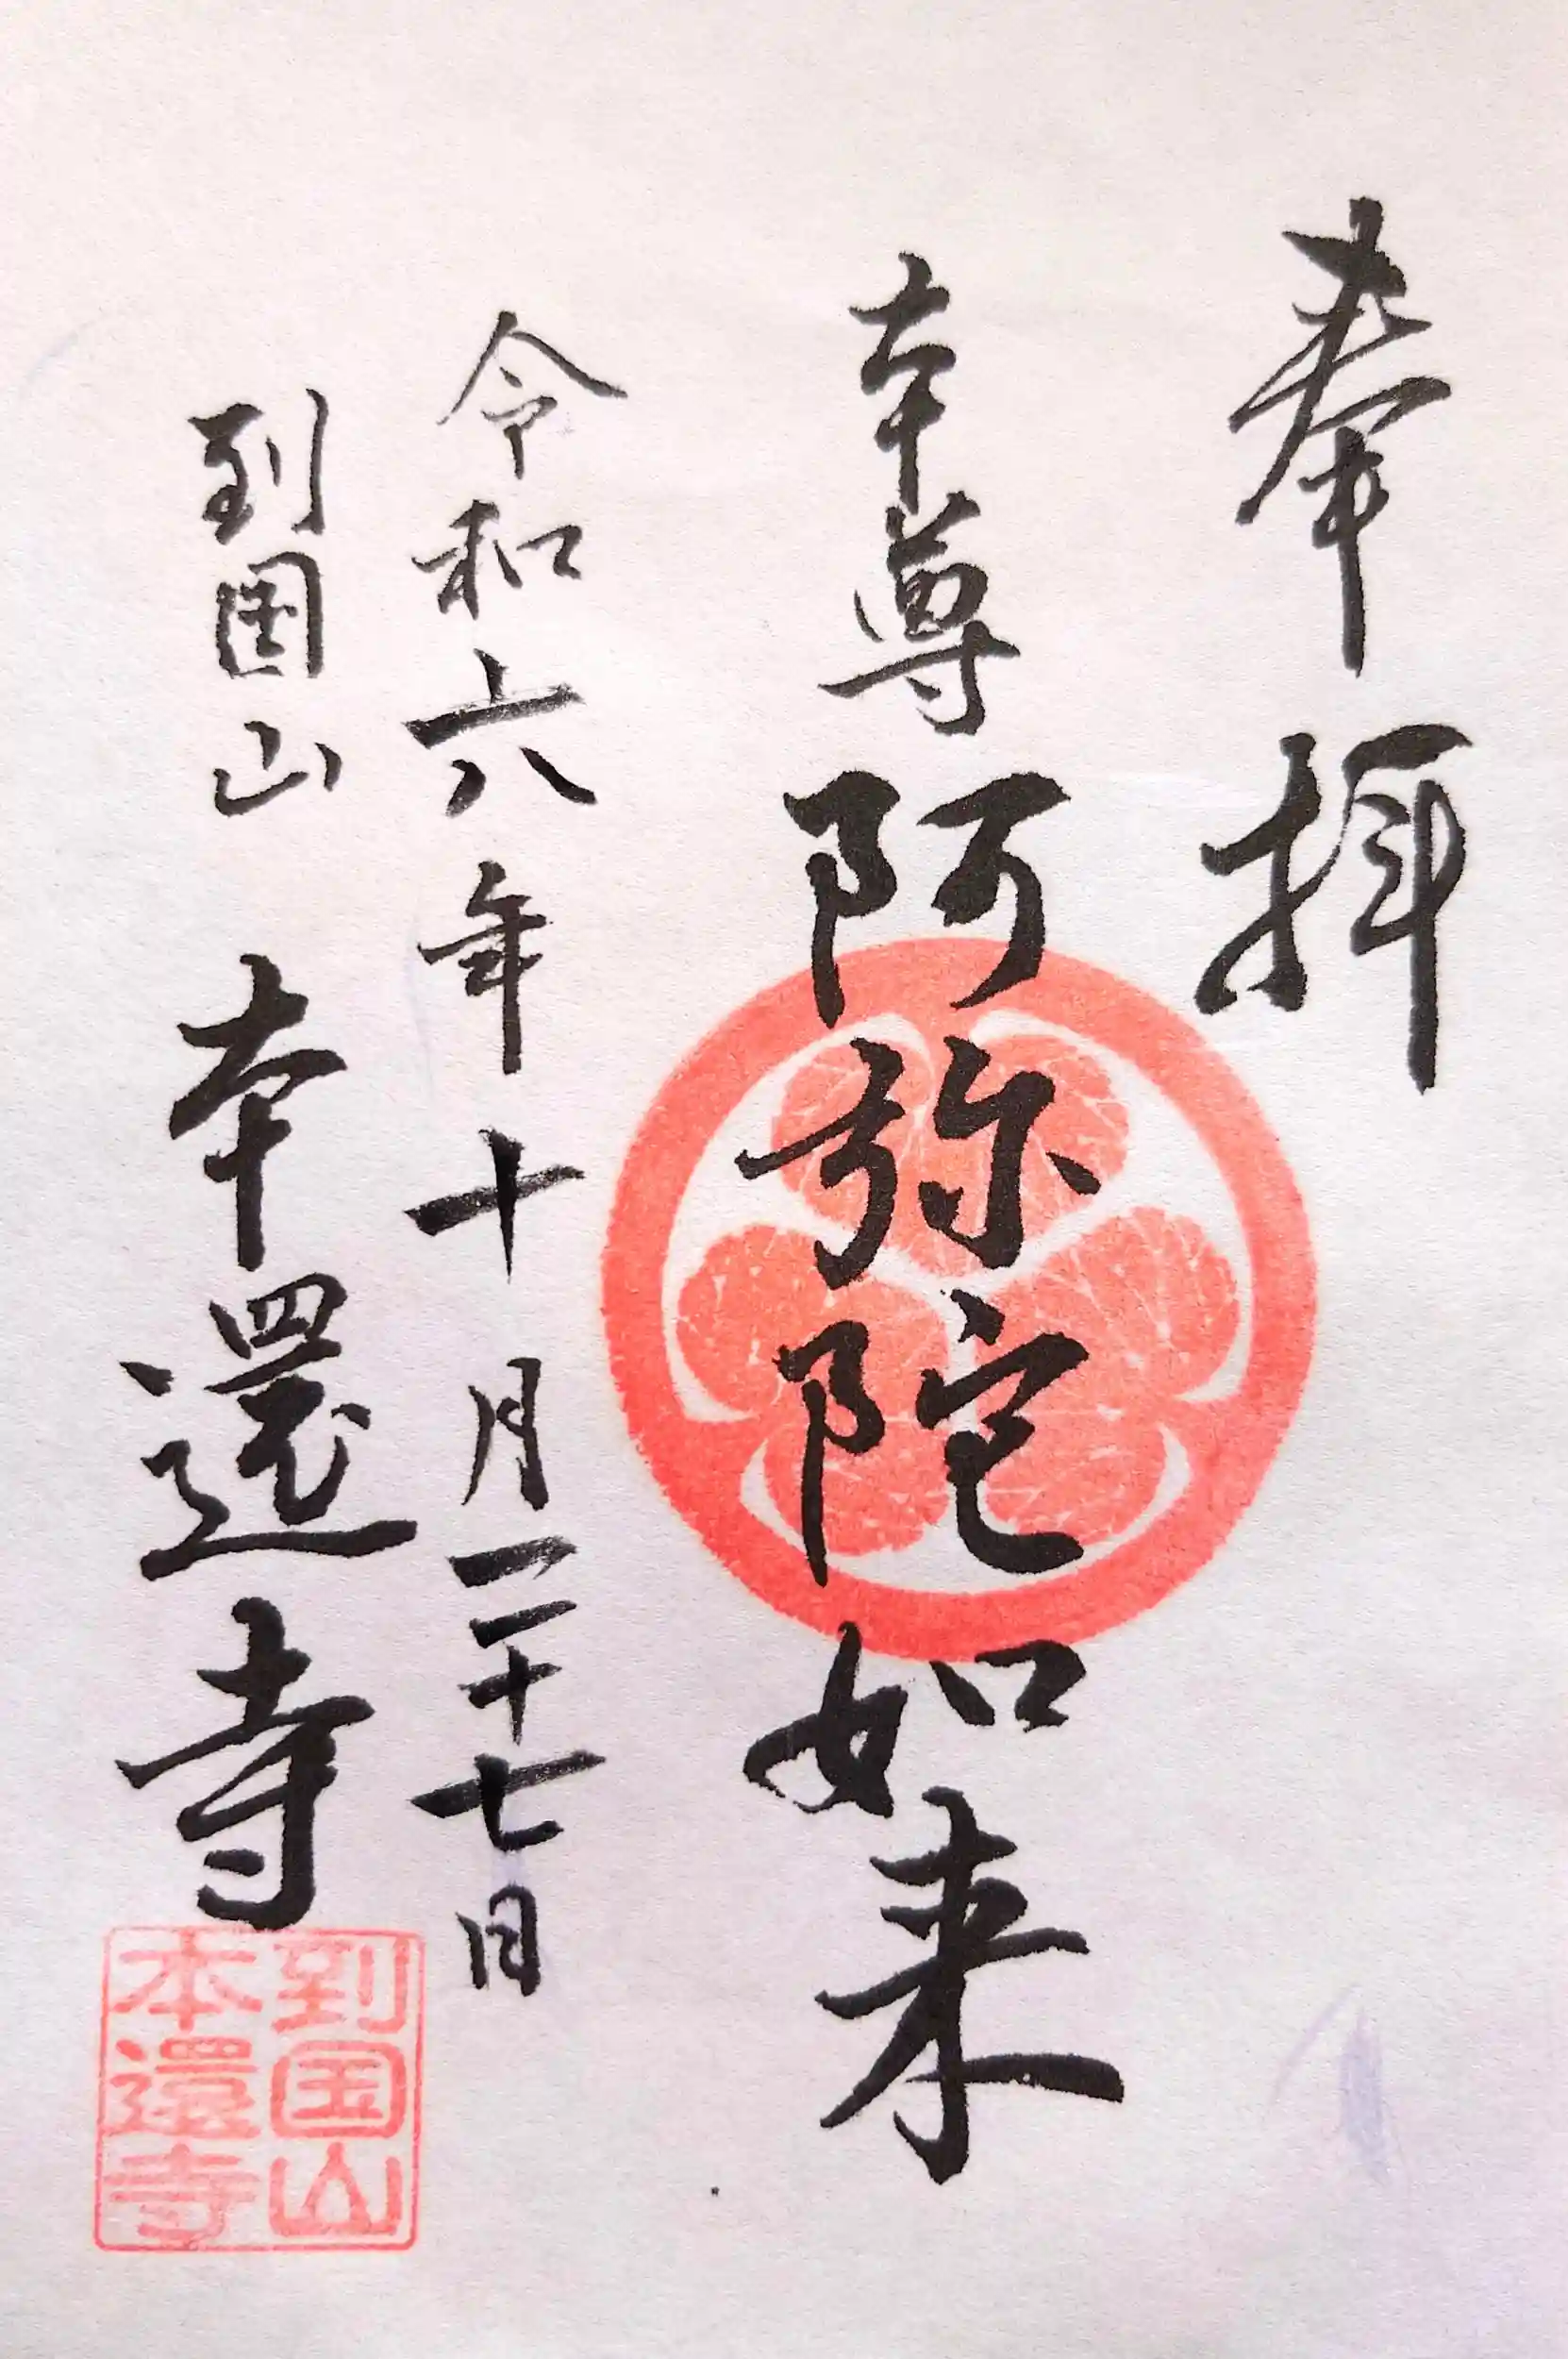 奉拝
本尊 阿弥陀如来
令和六年十月二十七日
到國山 本還寺
到国山
本還寺